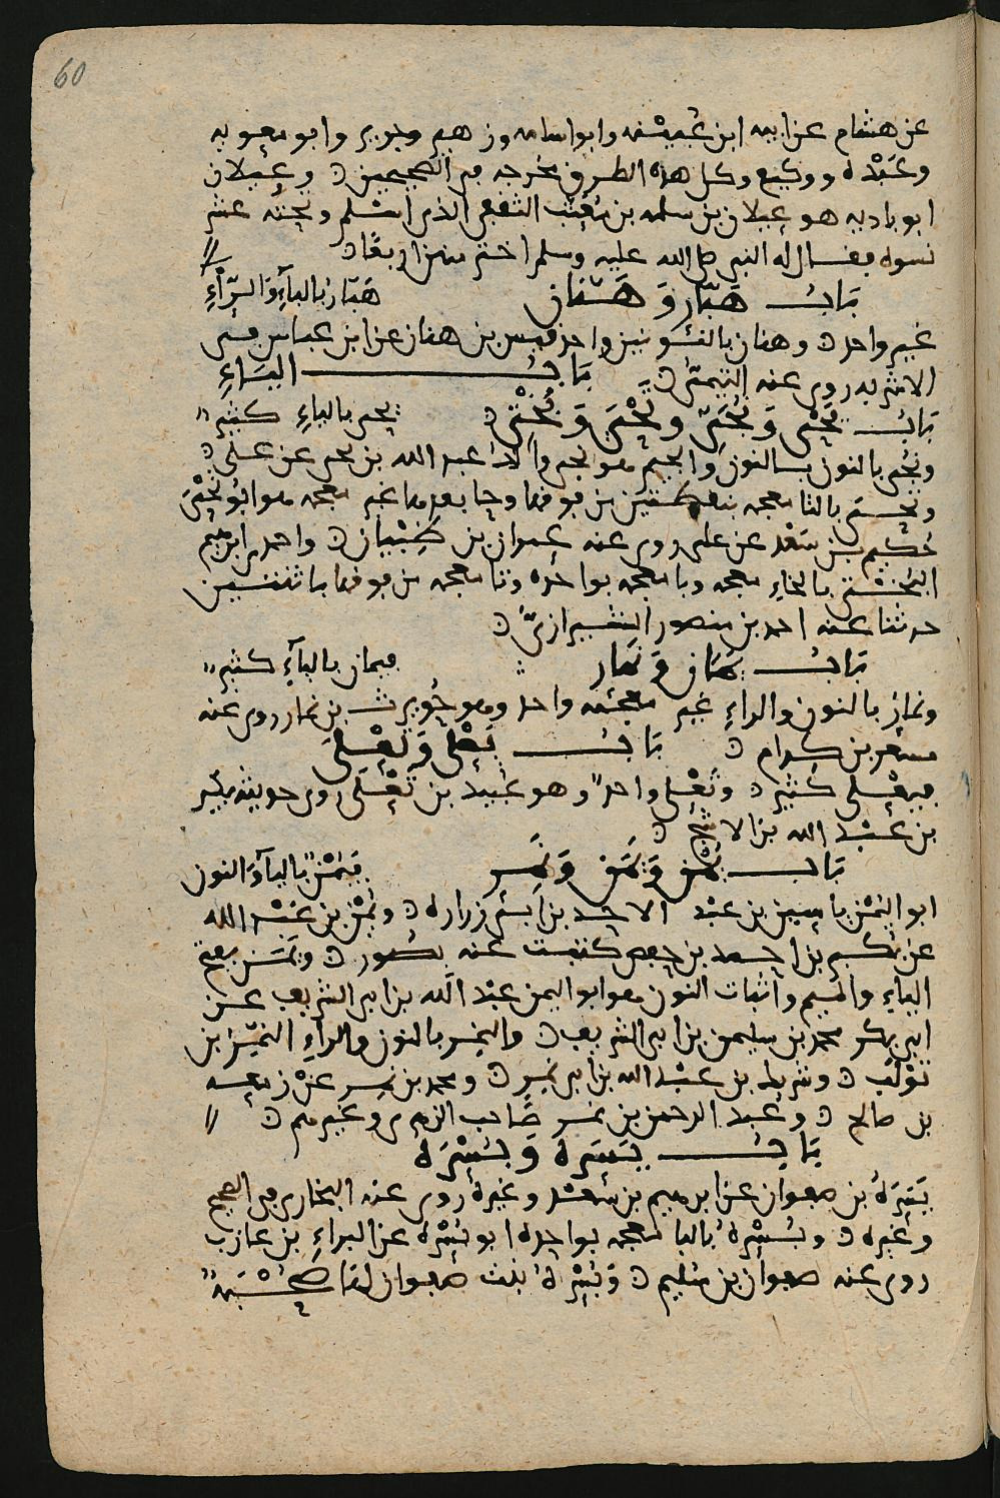 60
عن هشام عن ابيه ابن عيينه وابو اسامه وزهير وجرير وابو معويه
وعبْده ووكيع وكل هذه الطرق مخرجه في الصحيحين وغيلان
ابو باديه هو غيلان بن سلمه الثقفي الذي اسلم وتحته عشر
نسوه فقال له النبي صلى الله عليه وسلم اختر منهن اربعًا
بَابُ هَبّار وَ هَتّان هَبّار بالبآءِ وَالرّآءِ
غير واحد وهتان بالنون واحد قيس بن هنان عن ابن عباس في
الاشربه روى عنه التيمي بَابُ اليَاءِ
بَابُ يَحْيى وَنُجَيّ وتِحْيَى وَبُخْتِي يحيى بالياءِ كثير
ونُجَي بالنون والجيم هو نجي والد عبد الله بن نجي عن علي
وتحيى بالتا معجمه بنقطتين من فوقها وحا بعدها غير معجمه هو ابو تِحْيَى
حُكَيم بن سَعْد عن علي روى عنه عمران بن ظِبْيان واحمد بن ابرهيم
البُخْتي بالخاءِ معجمه وبا معجمه بواحده وتا معجمه من فوقها باثنتين
حدثنا عنه احمد بن منصور الشيرازيّ
بَابُ يَمَان وَ نمَار فيمان باليآءِ كثير
ونمار بالنون والراءِ غير معجمه واحد وهو جُويرية بن نمار روى عنه
مسعر بن كدام بَابُ يَعْلَى وَتِعْلَى
فيعْلى كثير وتِعْلى واحدٌ وهو عُبيد بن تِعْلَى روى حديثه بكير
بن عبْد الله بن الاشج
بَابُ يُمْن وَيَمَن وَنَمِر فيُمْنٌ باليآءِ وَالنون
ابو اليُمْن ياسين بن عبْد الاحد بن ابي زراره ويُمْن بن عبْد الله
عن بكر بن احمد بن حفص كتبت عنه بصور ويَمَن بفتح
الياءِ والميم واثبات النون هو ابو اليمن عبْد الله بن ابي الشريف عن
ابي بكر محمد بن سليمن بن ابي الشريف والنمر بالنون والراءِ النمِر بن
تَوْلَب وشريك بن عبْد الله بن ابي نَمِر ومحمد بن نمر عن ربيعه
بن صالح وعبد الرحمن بن نمر صَاحب الزهري وغيرهم
بَابُ يَسَرَه وَبُسْرَه
يَسَرَةُ بن صفوان عن ابرهيم بن سعْد وغيره روى عنه البخاري في الصحيح
وغيره وبُسْرةُ بالبا معجمه بواحده ابو بُسْرة عن البراءِ بن عازب
روى عنه صفوان بن سُليم وَبُسْرةُ بنت صفوان لها صُحْبَه